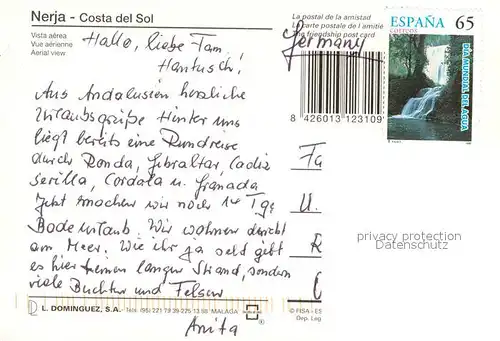 Nerja - Costa del Sol
Vista aérea
Vue aérienne
Aerial view
La postal de la amistad
La carte postale de l'amitié
The friendship post card
Germany
8 426013 123109
ESPAÑA 65
CORREOS
DIA MUNDIAL DEL AGUA
Hallo, liebe Fam.
Hantusch!
Aus Andalusien herzliche
Urlaubsgrüße Hinter uns
liegt bereits eine Rundreise
durch Ronda, Gibraltar, Cadiz
Sevilla, Cordoba u. Granada
Jetzt machen wir noch 14 Tge
Badeurlaub. Wir wohnen direkt
am Meer. Wie ihr ja seht gibt
es hier keinen langen Strand, sondern
viele Buchten und Felsen
Anita
Fa
U.
R
privacy protection
Datenschutz
L. DOMINGUEZ, S.A. MALAGA
© FISA - ES
Dep. Leg